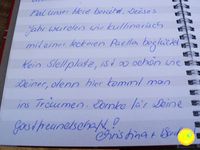 Jahr wurden wir kulinarisch
mit einer leckeren Paella beglückt
Kein Stellplatz, ist so schön wie
Deiner, denn hier kommt man
ins Träumen. Danke für Deine
Gastfreundschaft!
Christina +